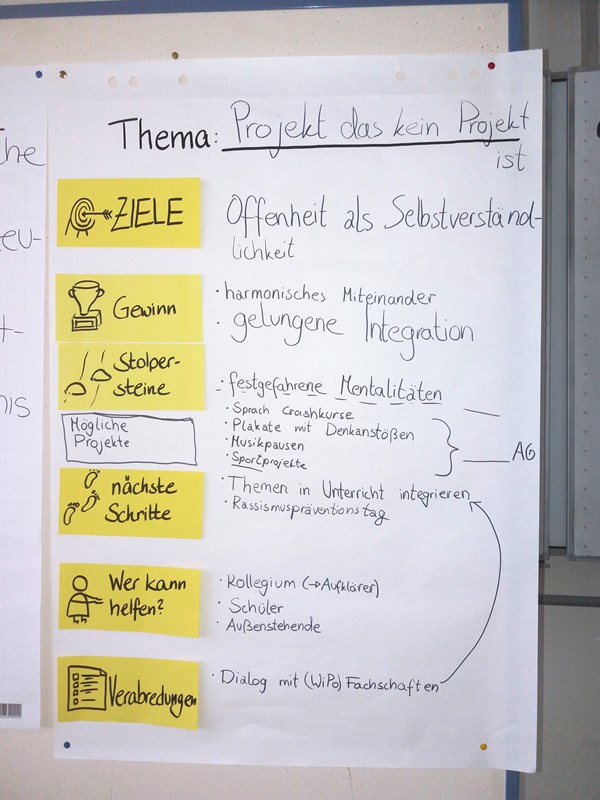 Thema: Projekt das kein Projekt
ist
ZIELE
Offenheit als Selbstverständ-
lichkeit
Gewinn
· harmonisches Miteinander
· gelungene Integration
Stolper-
steine
· festgefahrene Mentalitäten
Mögliche
Projekte
· Sprach Crashkurse
· Plakate mit Denkanstößen
· Musikpausen
· Sportprojekte
AG
nächste
Schritte
· Themen in Unterricht integrieren
· Rassismuspräventionstag
Wer kann
helfen?
· Kollegium (→Aufklärer)
· Schüler
· Außenstehende
Verabredungen
· Dialog mit (WiPo) Fachschaften